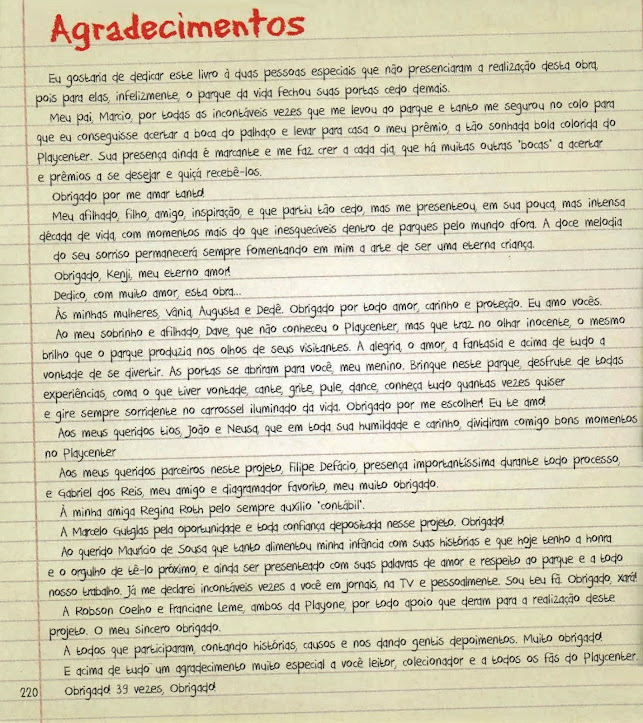 Agradecimentos
Eu gostaria de dedicar este livro à duas pessoas especiais que não presenciaram a realização desta obra,
pois para elas, infelizmente, o parque da vida fechou suas portas cedo demais.
Meu pai, Marcio, por todas as incontáveis vezes que me levou ao parque e tanto me segurou no colo para
que eu conseguisse acertar a boca do palhaço e levar para casa o meu prêmio, a tão sonhada bola colorida do
Playcenter. Sua presença ainda é marcante e me faz crer a cada dia, que há muitas outras "bocas" a acertar
e prêmios a se desejar e quiçá recebê-los.
Obrigado por me amar tanto!
Meu afilhado, filho, amigo, inspiração, e que partiu tão cedo, mas me presenteou, em sua pouca, mas intensa
década de vida, com momentos mais do que inesquecíveis dentro de parques pelo mundo afora. A doce melodia
do seu sorriso permanecerá sempre fomentando em mim a arte de ser uma eterna criança.
Obrigado, Kenji, meu eterno amor!
Dedico, com muito amor, esta obra...
Às minhas mulheres, Vânia, Augusta e Dedê. Obrigado por todo amor, carinho e proteção. Eu amo vocês.
Ao meu sobrinho e afilhado, Dave, que não conheceu o Playcenter, mas que traz no olhar inocente, o mesmo
brilho que o parque produzia nos olhos de seus visitantes. A alegria, o amor, a fantasia e acima de tudo a
vontade de se divertir. As portas se abriram para você, meu menino. Brinque neste parque, desfrute de todas
experiências, coma o que tiver vontade, cante, grite, pule, dance, conheça tudo quantas vezes quiser
e gire sempre sorridente no carrossel iluminado da vida. Obrigado por me escolher! Eu te amo!
Aos meus queridos tios, João e Neusa, que em toda sua humildade e carinho, dividiram comigo bons momentos
no Playcenter
Aos meus queridos parceiros neste projeto, Filipe Defácio, presença importantíssima durante todo processo,
e Gabriel dos Reis, meu amigo e diagramador favorito, meu muito obrigado.
À minha amiga Regina Roth pelo sempre auxílio "contábil".
A Marcelo Gutglas pela oportunidade e toda confiança depositada nesse projeto. Obrigado!
Ao querido Mauricio de Sousa que tanto alimentou minha infância com suas histórias e que hoje tenho a honra
e o orgulho de tê-lo próximo, e ainda ser presenteado com suas palavras de amor e respeito ao parque e a todo
nosso trabalho. Já me declarei incontáveis vezes a você em jornais, na TV e pessoalmente. Sou teu fã. Obrigado, xará!
A Robson Coelho e Franciane Leme, ambos da Playone, por todo apoio que deram para a realização deste
projeto. O meu sincero obrigado.
A todos que participaram, contando histórias, causos e nos dando gentis depoimentos. Muito obrigado!
E acima de tudo um agradecimento muito especial a você leitor, colecionador e a todos os fãs do Playcenter.
Obrigado! 39 vezes, Obrigado!
220